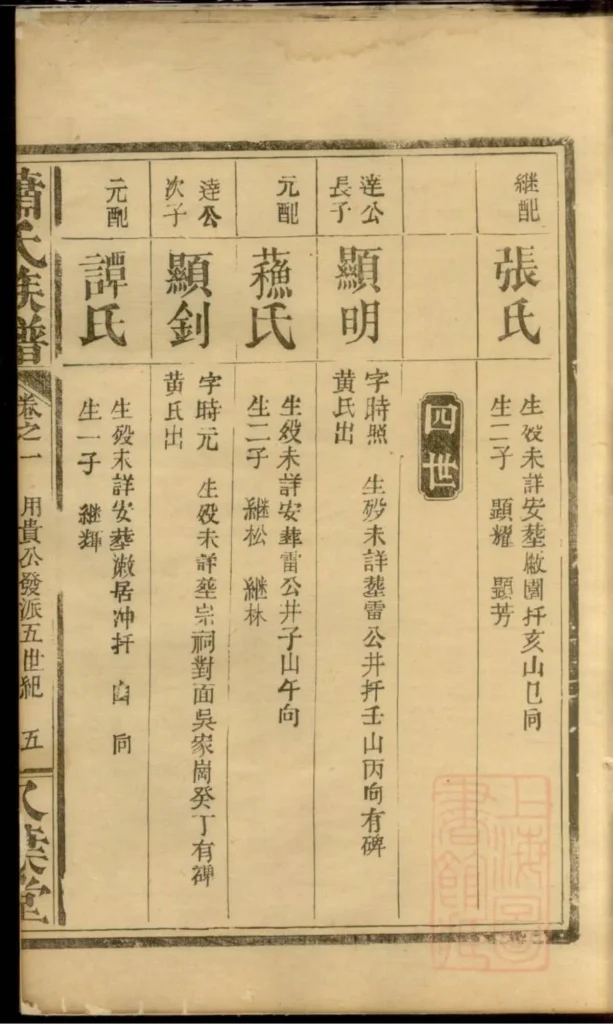 繼配
張氏
生歿未詳安塟敝園扦亥山巳向
生二子 顯耀 顯芳
四世
達公
長子
顯明
字時照 生歿未詳塟雷公井扦壬山丙向有碑
黃氏出
元配
蘓氏
生歿未詳安塟雷公井子山午向
生二子 繼松 繼林
達公
次子
顯釗
字時元 生歿未詳塟宗祠對面吳家崗癸丁有碑
黃氏出
元配
譚氏
生歿未詳安塟 居冲扦 山 向
生一子 繼輝
蕭氏族譜
卷之一
用貴公發派五世紀
五
八葉堂
上海圖
書館藏